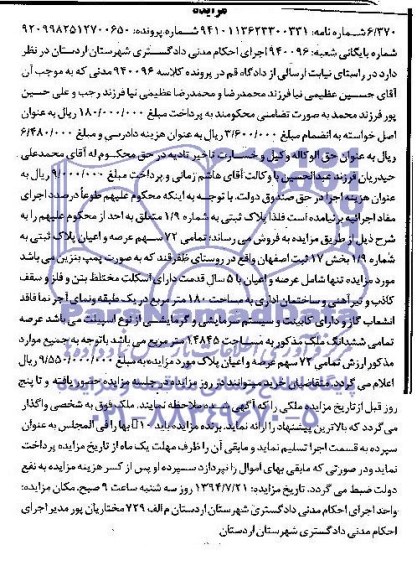 مزایده
۶/۳۷۰ شماره نامه: ۹۴۱۰۱۱۳۶۲۳۳۰۰۳۳۱ شماره پرونده: ۹۲۰۹۹۸۲۵۱۲۷۰۰۶۵۰
شماره بایگانی شعبه: ۹۴۰۰۹۶ اجرای احکام مدنی دادگستری شهرستان اردستان در نظر
دارد در راستای نیابت ارسالی از دادگاه قم در پرونده کلاسه ۹۴۰۰۹۶ مدنی که به موجب آن
آقای حسین عظیمی نیا فرزند محمدرضا و محمدرضا عظیمی نیا فرزند رجب و علی حسین
پور فرزند محمد به صورت تضامنی محکومند به پرداخت مبلغ ۱۸۰/۰۰۰/۰۰۰ ریال به عنوان
اصل خواسته به انضمام مبلغ ۳/۶۰۰/۰۰۰ ریال به عنوان هزینه دادرسی و مبلغ ۶/۴۸۰/۰۰۰
ریال به عنوان حق الوکاله وکیل و خسارت تاخیر تادیه در حق محکوم له آقای محمدعلی
حیدریان فرزند عبدالحسین با وکالت آقای هاشم زمانی و پرداخت مبلغ ۹/۰۰۰/۰۰۰ ریال به
عنوان هزینه اجرا در حق صندوق دولت. با توجه به اینکه محکوم علیهم طوعا درصدد اجرای
مفاد اجرائیه برنیامده است فلذا پلاک ثبتی به شماره ۱/۹ متعلق به احد از محکوم علیهم را به
شرح ذیل از طریق مزایده به فروش می رساند: تمامی ۷۲ سهم عرصه و اعیان پلاک ثبتی به
شماره ۱/۹ بخش ۱۷ ثبت اصفهان واقع در روستای ظفرقند که به صورت پمپ بنزین می باشد
مورد مزایده تنها شامل عرصه و اعیان با ۵ سال قدمت دارای اسکلت مختلط بتن و فلز و سقف
کاذب و تیرآهنی و ساختمان اداری به مساحت ۱۸۰ متر مربع در یک طبقه و نمای آجر نما فاقد
انشعاب گاز و دارای کابینت و سیستم سرمایشی و گرمایشی از نوع اسپیلت می باشد عرصه
تمامی ششدانگ ملک مذکور به مساحت ۱۴۸۴۵ متر مربع می باشد باتوجه به جمیع موارد
مذکور ارزش تمامی ۷۲ سهم عرصه و اعیان پلاک مورد مزایده به مبلغ ۹/۵۵۰/۰۰۰/۰۰۰ ریال
اعلام می گردد. متقاضیان خرید میتوانند در روز مزایده در جلسه مزایده حضور یافته و تا پنج
روز قبل از تاریخ مزایده ملکی را که آگهی شده ملاحظه نمایند. ملک فوق به شخصی واگذار
می گردد که بالاترین پیشنهاد را ارائه نماید. برنده مزایده باید ۱۰٪ بها را فی المجلس به عنوان
سپرده به قسمت اجرا تسلیم نماید و مابقی آن را ظرف مهلت یک ماه از تاریخ مزایده پرداخت
نماید ودر صورتی که مابقی بهای اموال را نپردازد سپرده او پس از کسر هزینه مزایده به نفع
دولت ضبط می گردد. تاریخ مزایده: ۱۳۹۴/۷/۲۱ روز سه شنبه ساعت ۹ صبح. مکان مزایده:
واحد اجرای احکام مدنی دادگستری شهرستان اردستان م الف ۷۲۹ مختاریان پور مدیر اجرای
احکام مدنی دادگستری شهرستان اردستان